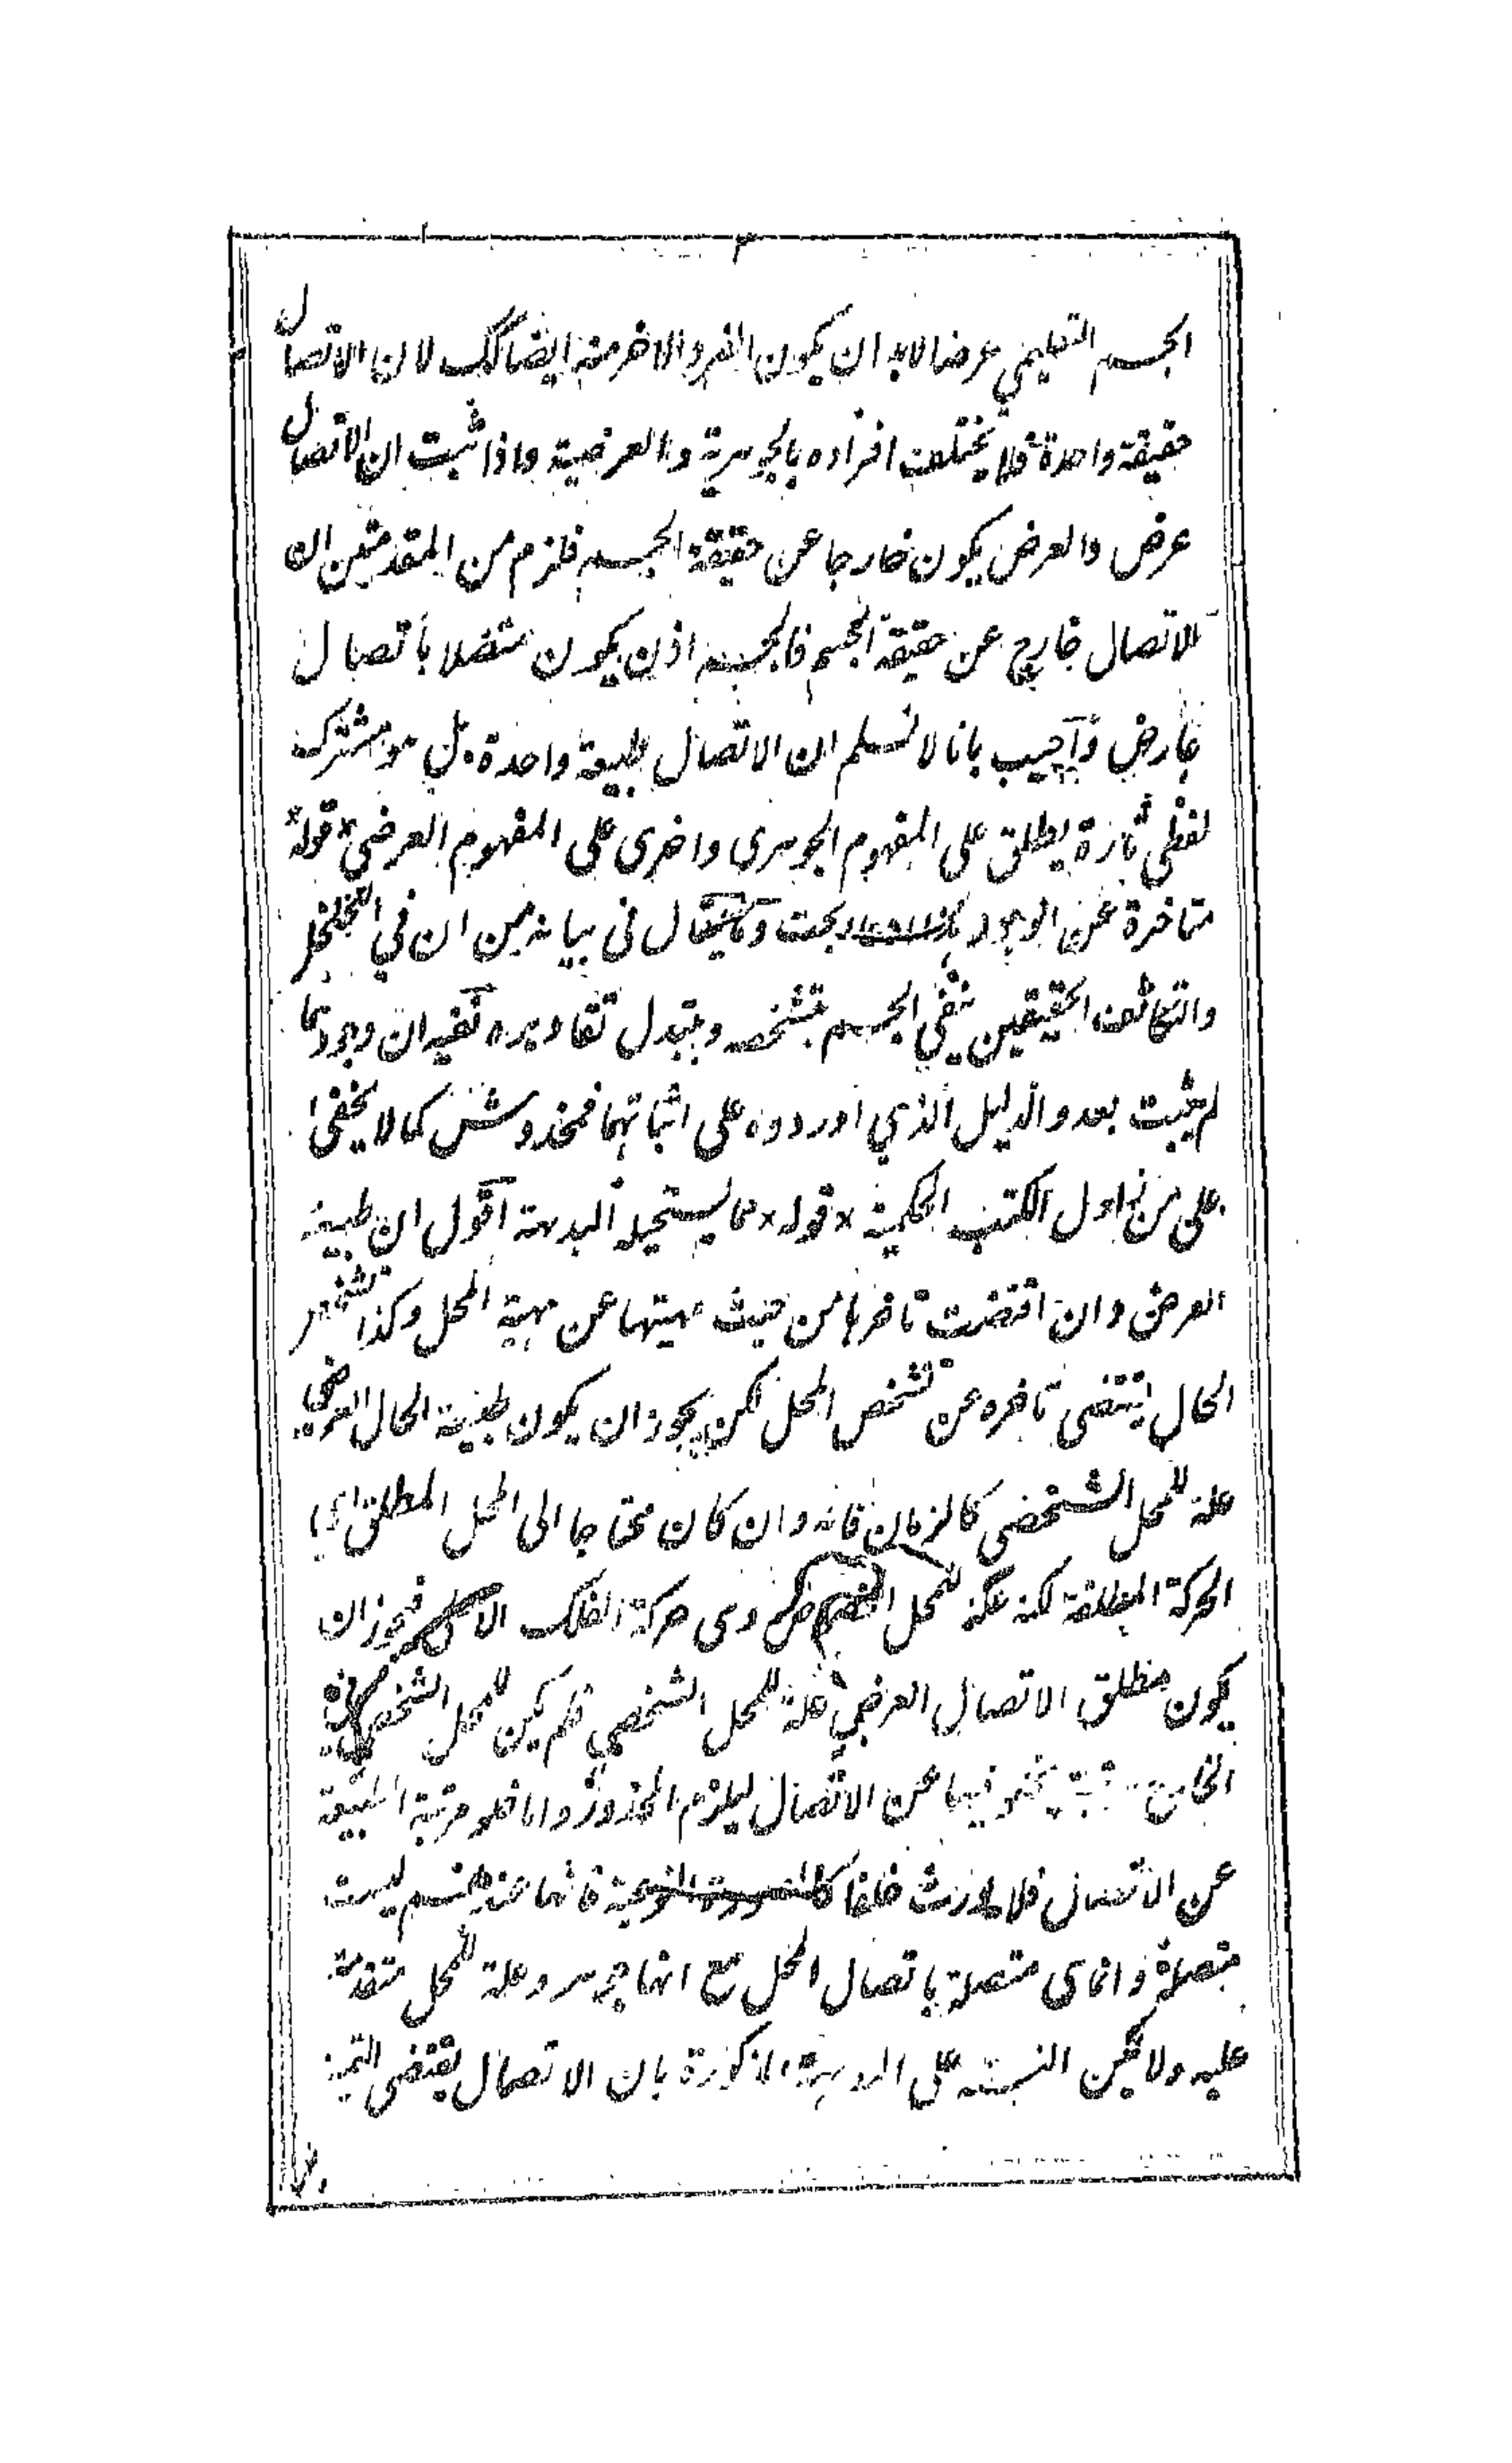 الجسم التعليمي عرضا لابد ان يكون الفرد الاخر منه ايضا كك لان الاتصال
حقيقة واحدة فلا يختلف افراده بالجوهرية والعرضية واذا ثبت ان الاتصال
عرض والعرض يكون خارجا عن حقيقة الجسم فلزم من المقدمتين ان
الاتصال خارج عن حقيقة الجسم فالجسم اذن يكون متصلا باتصال
عارض وأجيب بانا لا نسلم ان الاتصال طبيعة واحدة بل هو مشترك
لفظي تارة يطلق على المفهوم الجوهرى واخرى على المفهوم العرضي * قوله *
متاخرة عن الوجود بحت وما يقال في بيانه من ان في التخلخل
والتكاثف الحقيقين يبقي الجسم بتشخصه ويتبدل تقاديره ففيه ان وجودهما
لم يثبت بعد والدليل الذي اوردوه على اثباتهما فمخدوش كما لا يخفى
على من زاول الكتب الحكمية * قوله * مما يستحيله البديهة اقول ان طبيعة
العرض وان اقتضت تاخرها من حيث مهيتها عن مهية المحل وكذا تشخص
الحال يقتضى تاخره عن تشخص المحل لكن يجوز ان يكون طبيعة الحال العرضي
علة للمحل الشخصى كالزمان فانه وان كان محتاجا الى المحل المطلق اى
الحركة المطلقة لكنه علة للمحل وهى حركة الفلك الاعلى فيجوز ان
يكون مطلق الاتصال العرضي علة للمحل الشخصي فلم يكن للمحل الشخصي
الخارج مرتبة يخلو فيها عن الاتصال ليلزم المحذور واما خلو مرتبة الطبيعة
عن الاتصال فلا يورث خلفا كالصورة النوعية فانها عندهم ليست
متصلة وانما هى متصلة باتصال المحل مع انها جوهر وعلة للمحل متقدمة
عليه ولا يمكن على المذكورة بان الاتصال يقتضى